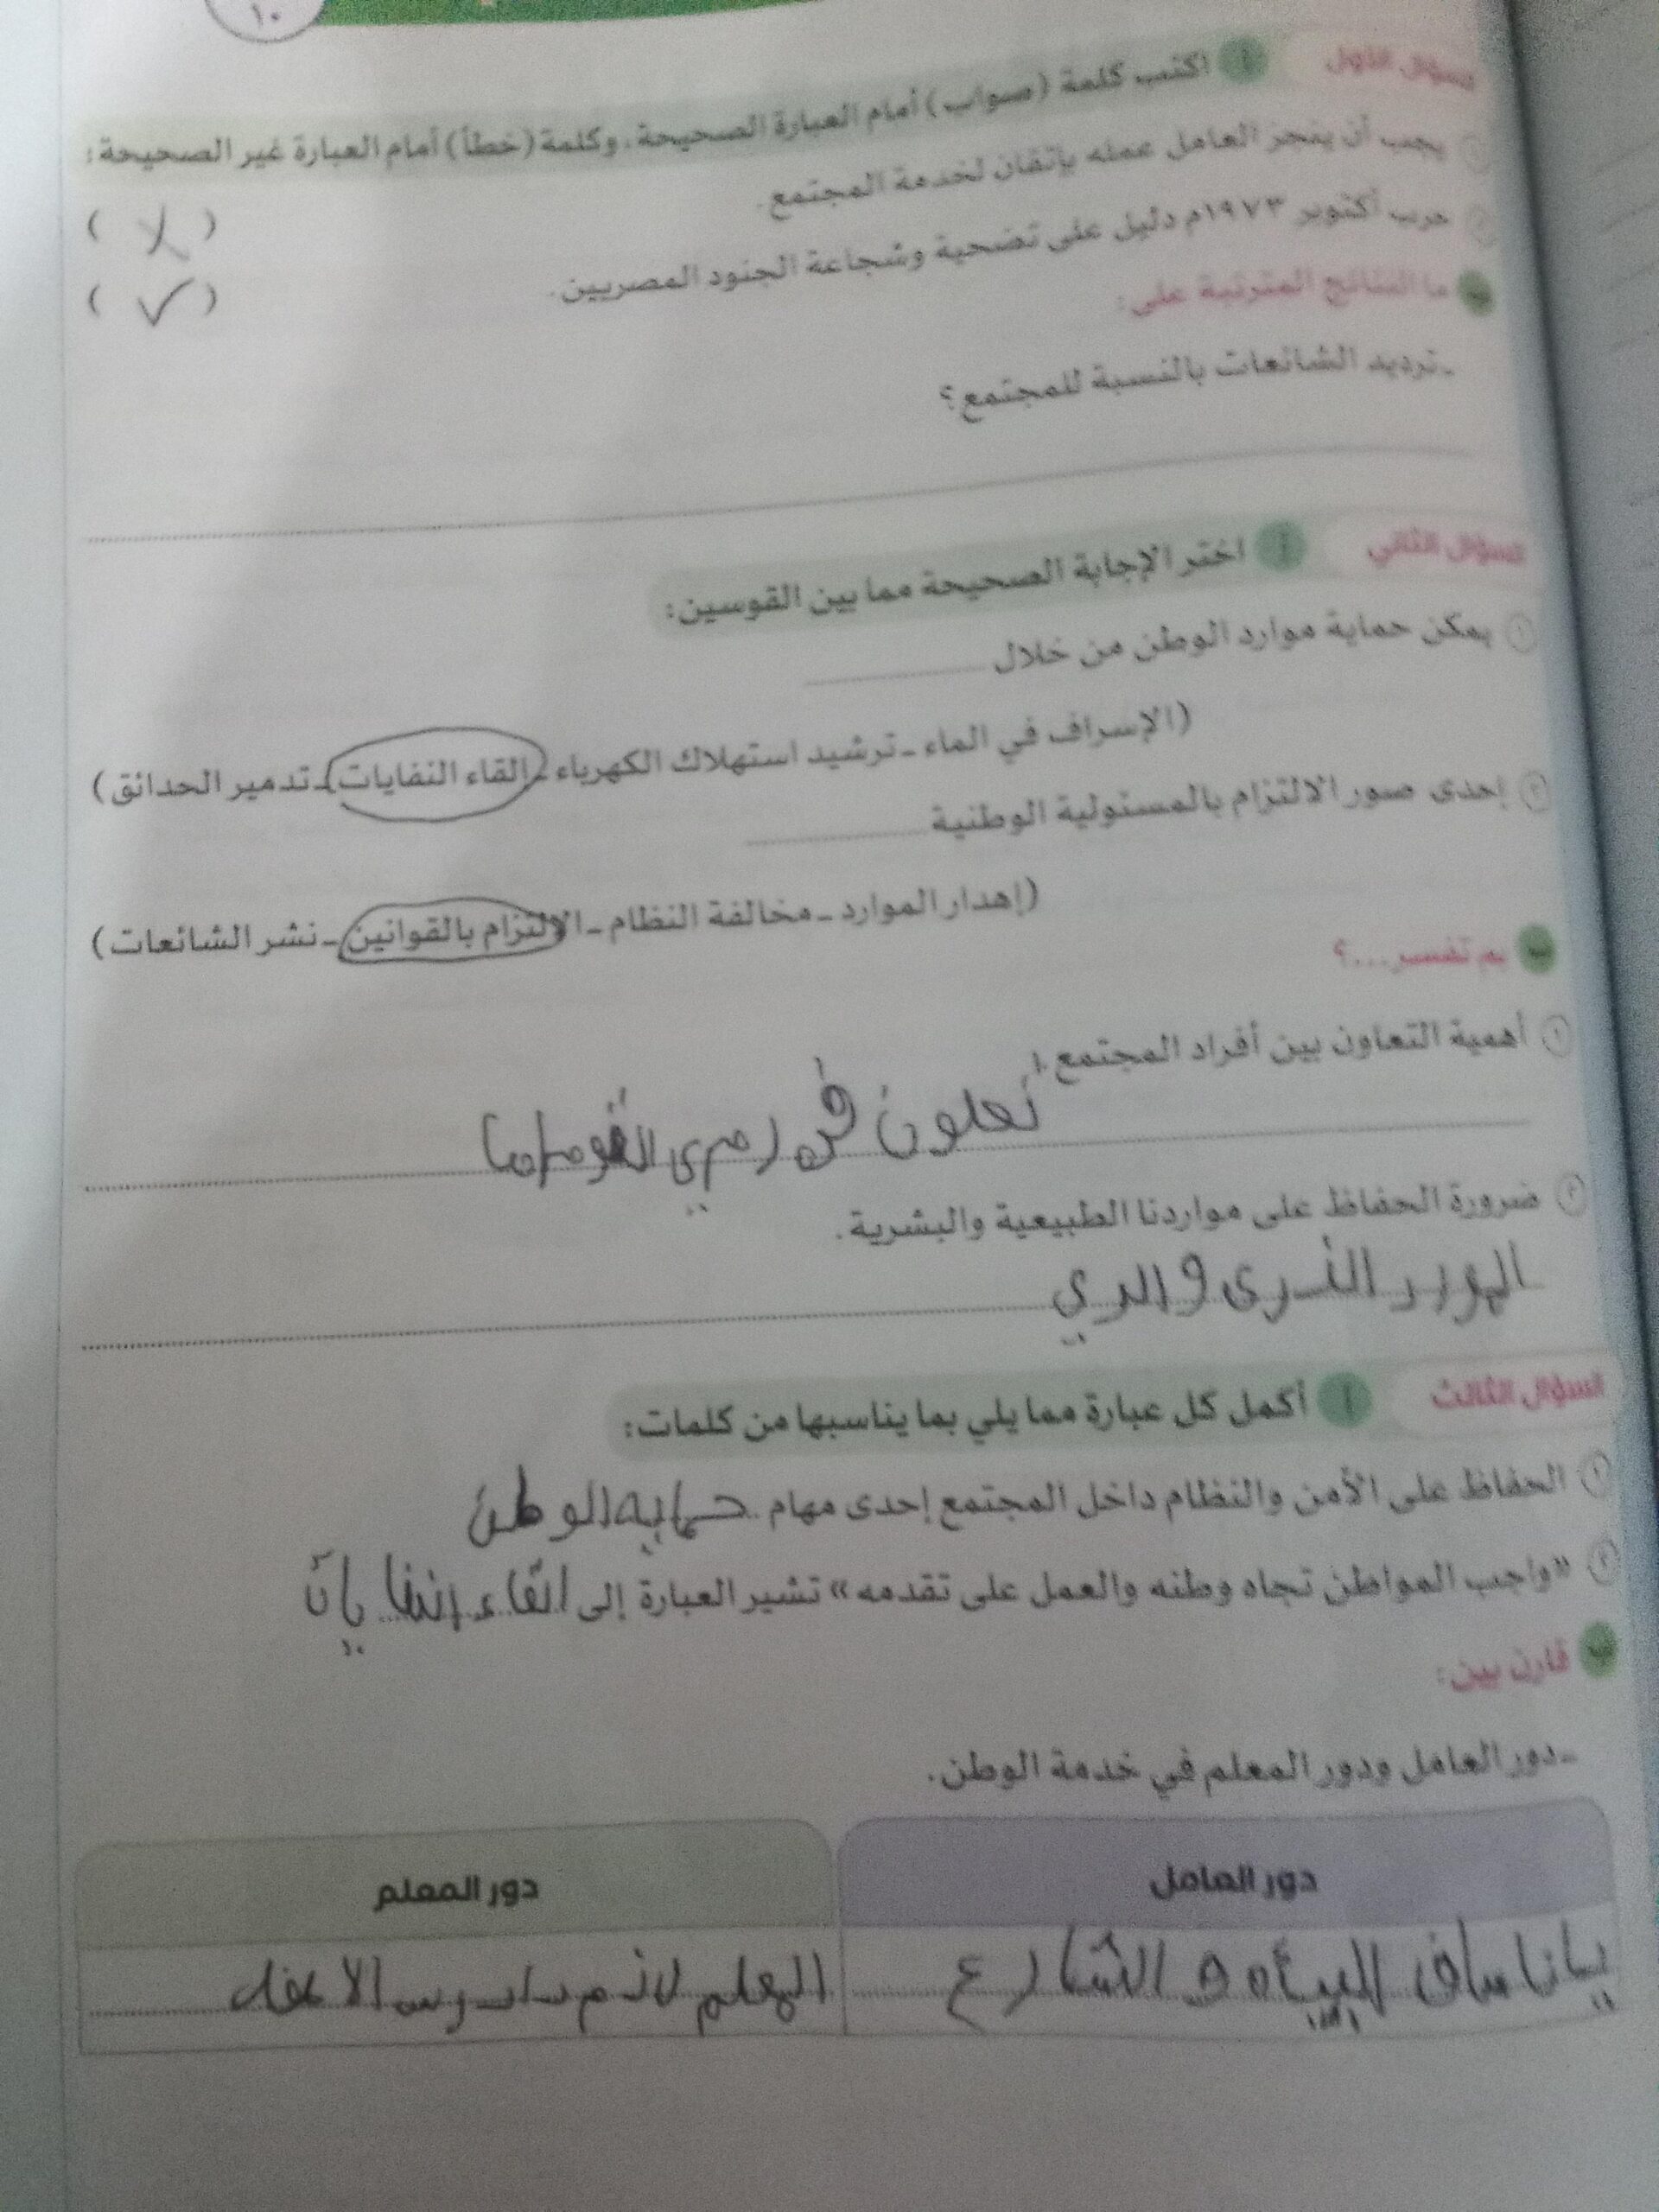 ١٠
السؤال الأول أ اكتب كلمة (صواب) أمام العبارة الصحيحة، وكلمة (خطأ) أمام العبارة غير الصحيحة:
١ يجب أن ينجز العامل عمله بإتقان لخدمة المجتمع. ( X )
٢ حرب أكتوبر ١٩٧٣م دليل على تضحية وشجاعة الجنود المصريين. ( ✓ )
ب ما النتائج المترتبة على:
- ترديد الشائعات بالنسبة للمجتمع؟
السؤال الثاني أ اختر الإجابة الصحيحة مما بين القوسين:
١ يمكن حماية موارد الوطن من خلال
(الإسراف في الماء - ترشيد استهلاك الكهرباء - إلقاء النفايات - تدمير الحدائق)
٢ إحدى صور الالتزام بالمسئولية الوطنية
(إهدار الموارد - مخالفة النظام - الالتزام بالقوانين - نشر الشائعات)
ب بم تفسر...؟
١ أهمية التعاون بين أفراد المجتمع.
في رمي
٢ ضرورة الحفاظ على مواردنا الطبيعية والبشرية.
السؤال الثالث أ أكمل كل عبارة مما يلي بما يناسبها من كلمات:
١ الحفاظ على الأمن والنظام داخل المجتمع إحدى مهام حمايه الوطن
٢ «واجب المواطن تجاه وطنه والعمل على تقدمه» تشير العبارة إلى
ب قارن بين:
- دور العامل ودور المعلم في خدمة الوطن.
دور العامل
دور المعلم
و الشارع
المعلم